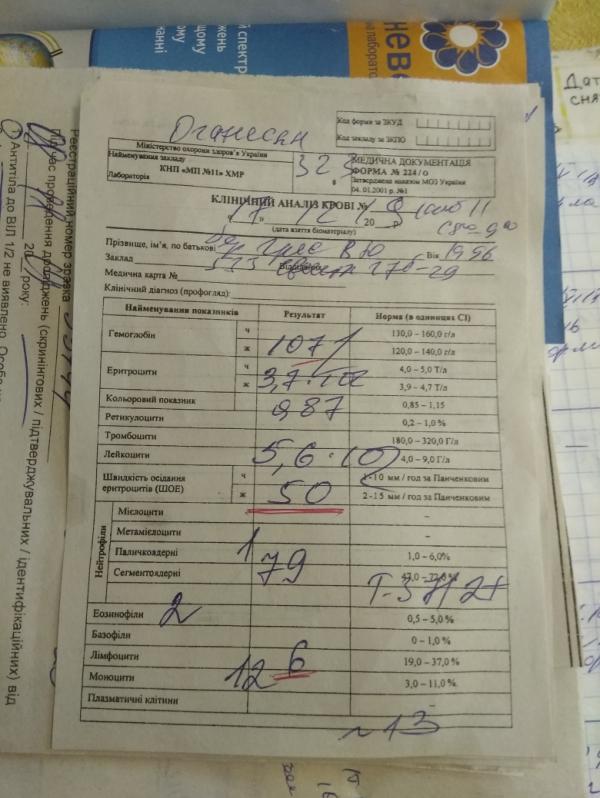 й спектр
шому
ому
канні
неве
лаборато
Дат
сня
Оганесян
Код форми за ЗКУД
Код закладу за ЗКПО
Міністерство охорони здоров'я України
Найменування закладу
КНП «МП №11» ХМР
Лабораторія
323
МЕДИЧНА ДОКУМЕНТАЦІЯ
ФОРМА № 224 / О
Затверджена наказом МОЗ України
04. 01.2001 р. №1
КЛІНІЧНИЙ АНАЛІЗ КРОВІ №
20 р.
(дата взяття біоматеріалу)
Прізвище, ім'я, по батькові Вік 1956
Заклад 27б-29
Медична карта №
Клінічний діагноз (профогляд):
Найменування показників Результат Норма (в одиницях СІ)
Гемоглобін ч 130,0 – 160,0 г/л
ж 107 120,0 – 140,0 г/л
Еритроцити ч 4,0 – 5,0 Т/л
ж 3,7 3,9 – 4,7 Т/л
Кольоровий показник 0,87 0,85 – 1,15
Ретикулоцити 0,2 – 1,0 %
Тромбоцити 180,0 – 320,0 Г/л
Лейкоцити 5,6 · 10 4,0 – 9,0 Г/л
Швидкість осідання еритроцитів (ШОЕ) ч 1-10 мм / год за Панченковим
ж 50 2-15 мм / год за Панченковим
Нейтрофіли
Мієлоцити –
Метамієлоцити –
Паличкоядерні 1 1,0 – 6,0%
Сегментоядерні 79 47,0 – 72,0 %
Еозинофіли 2 0,5 – 5,0 %
Базофіли 0 – 1,0 %
Лімфоцити 12 19,0 – 37,0 %
Моноцити 6 3,0 – 11,0 %
Плазматичні клітини –
~13
Реєстраційний номер зразка
Під час проведення досліджень (скринінгових / підтверджувальних / ідентифікаційних) від
20 року:
Антитіла до ВІЛ 1/2 не виявлено.